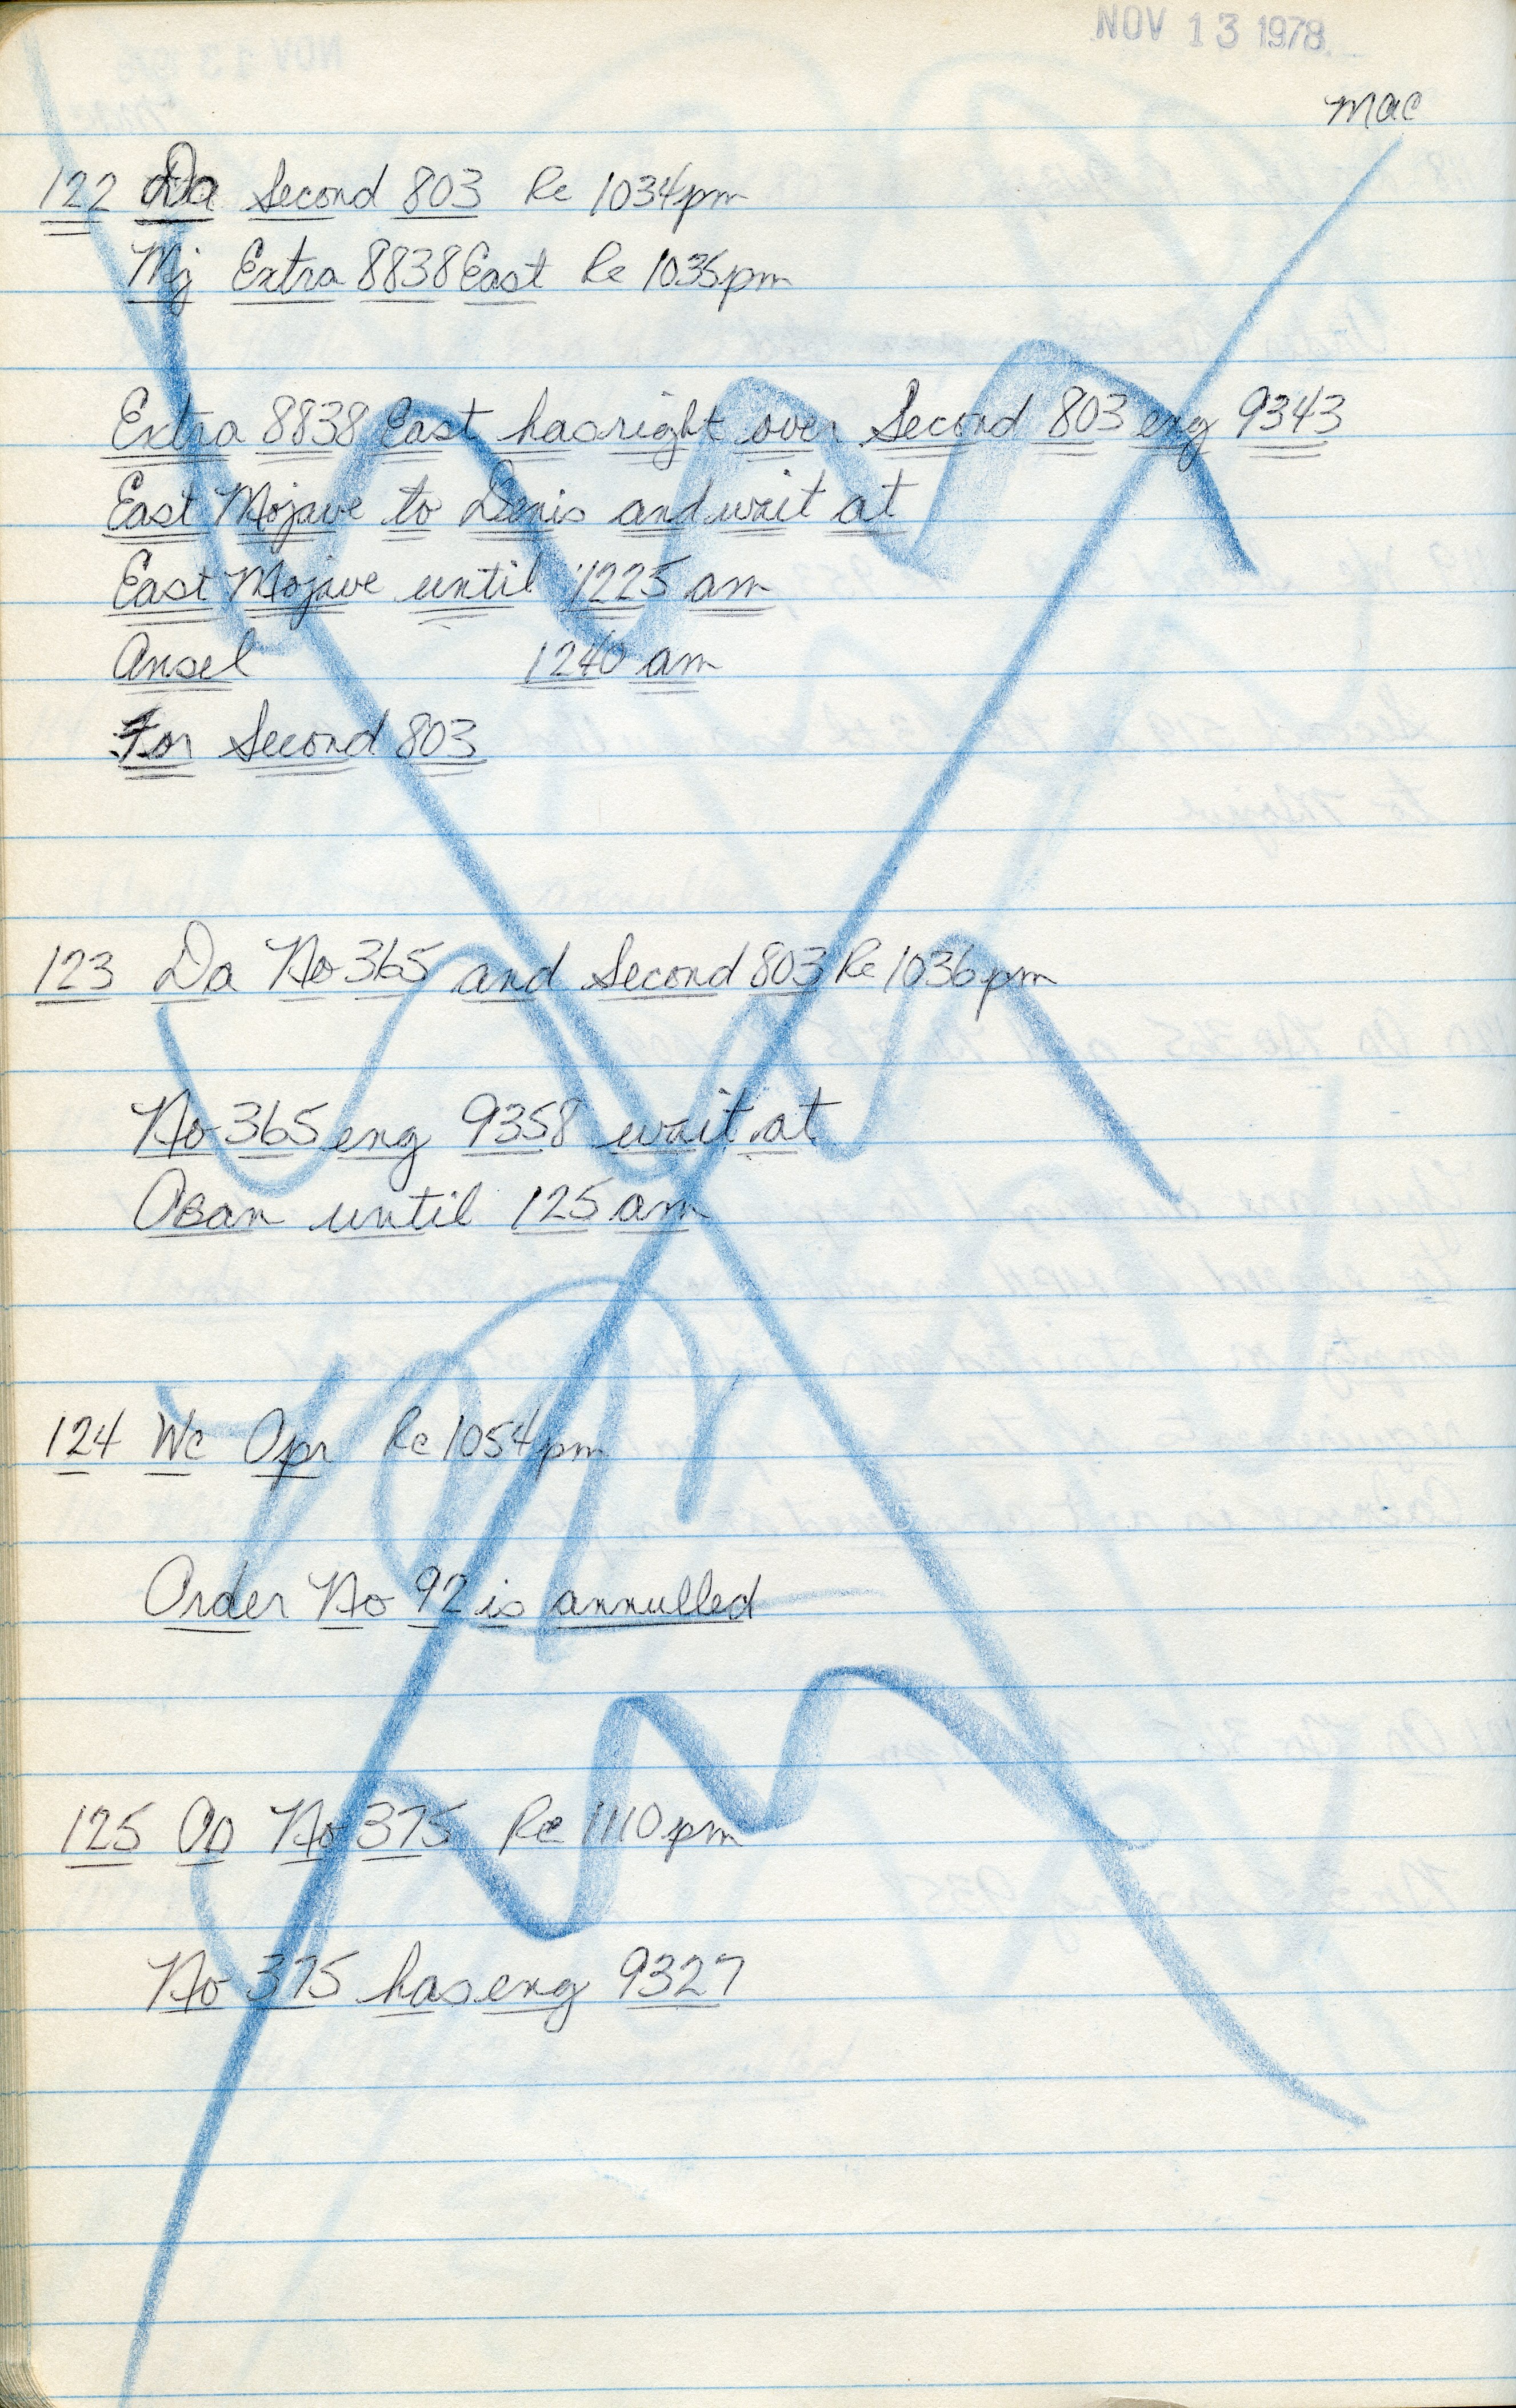 NOV 13 1978
mac
122 Da Second 803 Re 1034pm
Mj Extra 8838 East Re 1035pm
Extra 8838 East has right over Second 803 eng 9343
East Mojave to Denis and wait at
East Mojave until 1225 am
Ansel 1240 am
For Second 803
123 Da No 365 and Second 803 Re 1036pm
No 365 eng 9358 wait at
Oban until 125 am
124 Wc Opr Re 1054pm
Order No 92 is annulled
125 No 375 Re 1110pm
No 375 has eng 9327